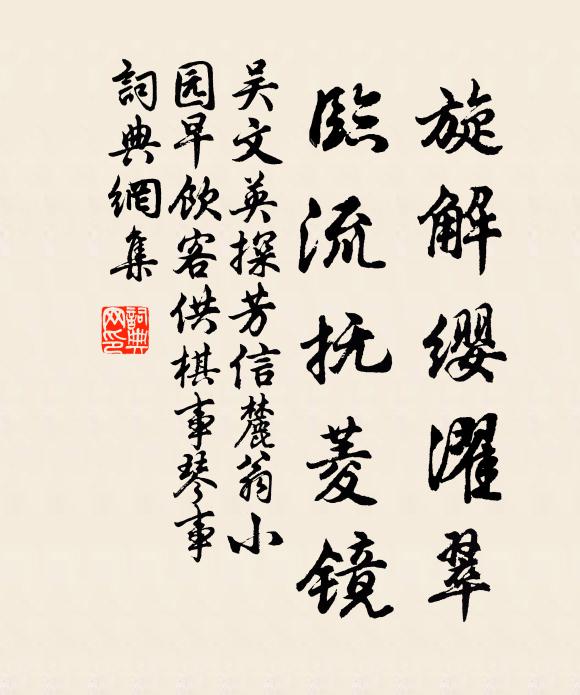 旋解缨濯翠
臨流抚菱镜
吴文英探芳信麓翁小
园早饮客供棋事琴事
詞典網集
詞典
网印